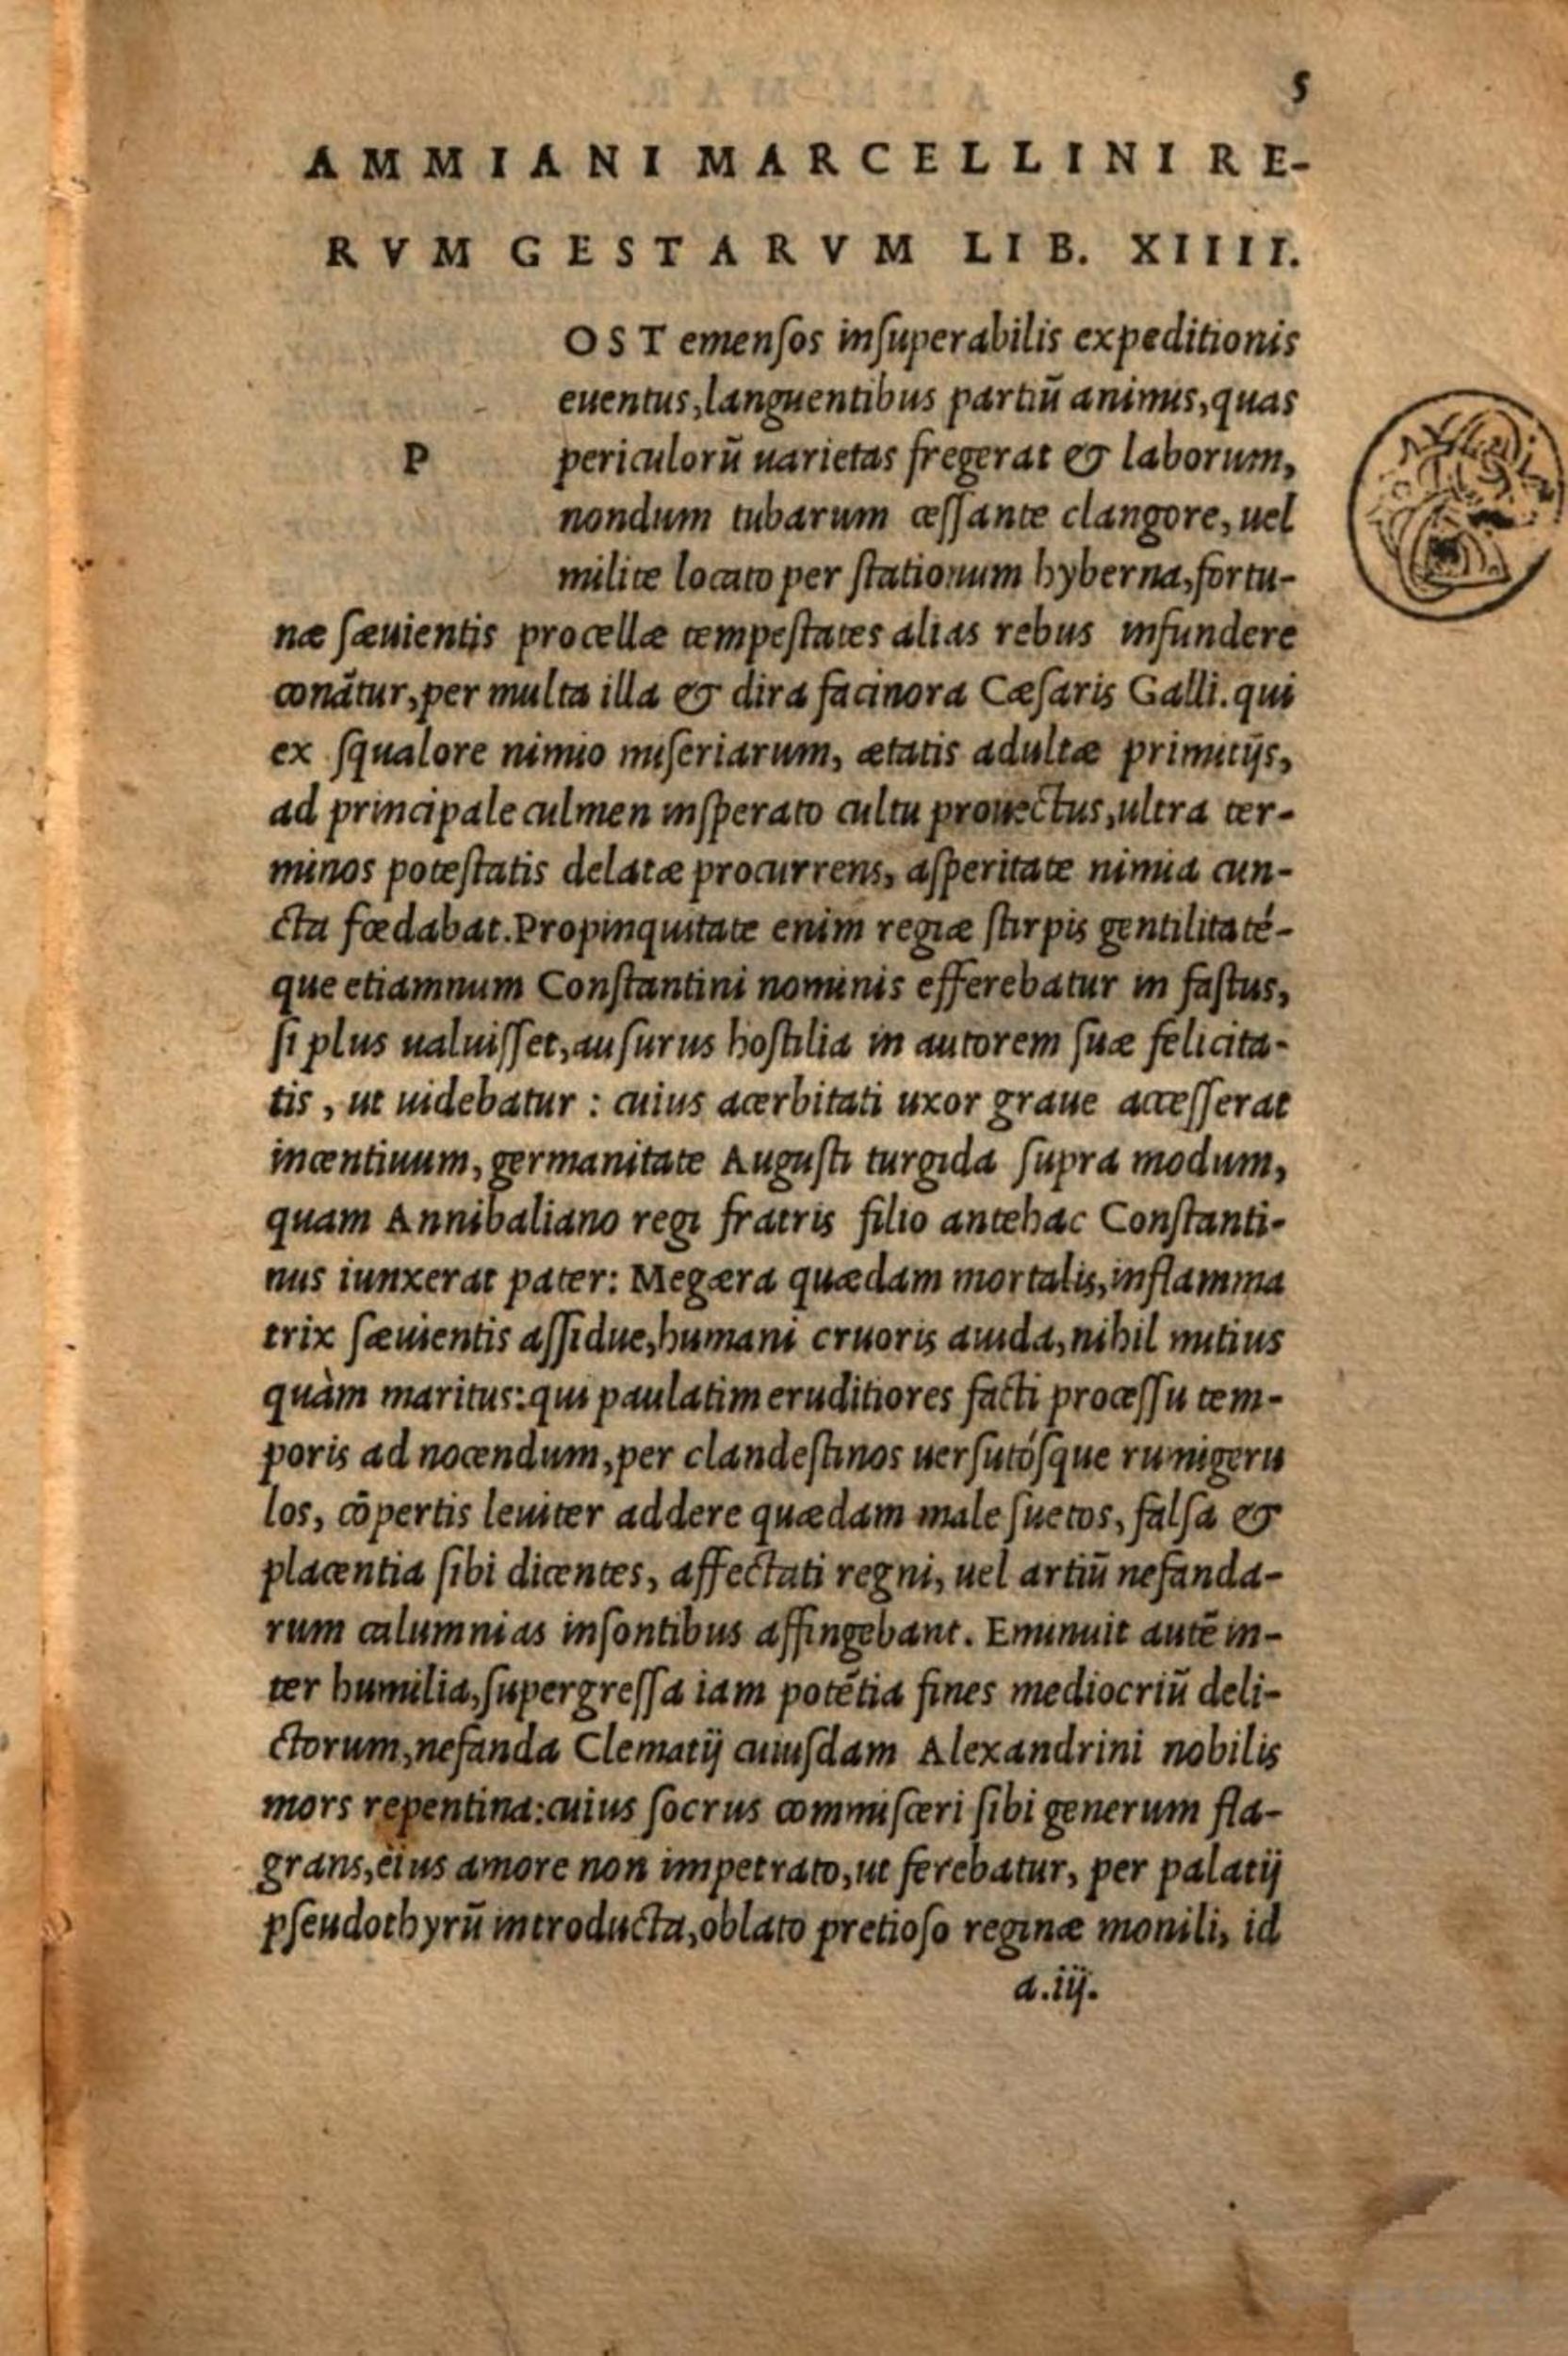 5
AMMIANI MARCELLINI RE-
RVM GESTARVM LIB. XIIII.
P
OST emenſos inſuperabilis expeditionis
euentus, languentibus partiū animis, quas
periculorū uarietas fregerat & laborum,
nondum tubarum ceſſante clangore, uel
milite locato per ſtationum hyberna, fortu-
næ ſæuientis procellæ tempeſtates alias rebus infundere
conātur, per multa illa & dira facinora Cæſaris Galli. qui
ex ſqualore nimio miſeriarum, ætatis adultæ primitijs,
ad principale culmen inſperato cultu prouectus, ultra ter-
minos poteſtatis delatæ procurrens, aſperitate nimia cun-
cta fœdabat. Propinquitate enim regiæ ſtirpis gentilitaté-
que etiamnum Conſtantini nominis efferebatur in faſtus,
ſi plus ualuiſſet, auſurus hoſtilia in autorem ſuæ felicita-
tis, ut uidebatur : cuius acerbitati uxor graue acceſſerat
incentiuum, germanitate Auguſti turgida ſupra modum,
quam Annibaliano regi fratris filio antehac Conſtanti-
nus iunxerat pater: Megæra quædam mortalis, inflamma
trix ſæuientis aſſidue, humani cruoris auida, nihil mitius
quàm maritus: qui paulatim eruditiores facti proceſſu tem-
poris ad nocendum, per clandeſtinos uerſutóſque rumigeru
los, cōpertis leuiter addere quædam male ſuetos, falſa &
placentia ſibi dicentes, affectati regni, uel artiū nefanda-
rum calumnias inſontibus affingebant. Eminuit autē in-
ter humilia, ſupergreſſa iam potētia fines mediocriū deli-
ctorum, nefanda Clematij cuiuſdam Alexandrini nobilis
mors repentina: cuius ſocrus commiſceri ſibi generum fla-
grans, eius amore non impetrato, ut ferebatur, per palatij
pſeudothyrū introducta, oblato pretioſo reginæ monili, id
a.iij.